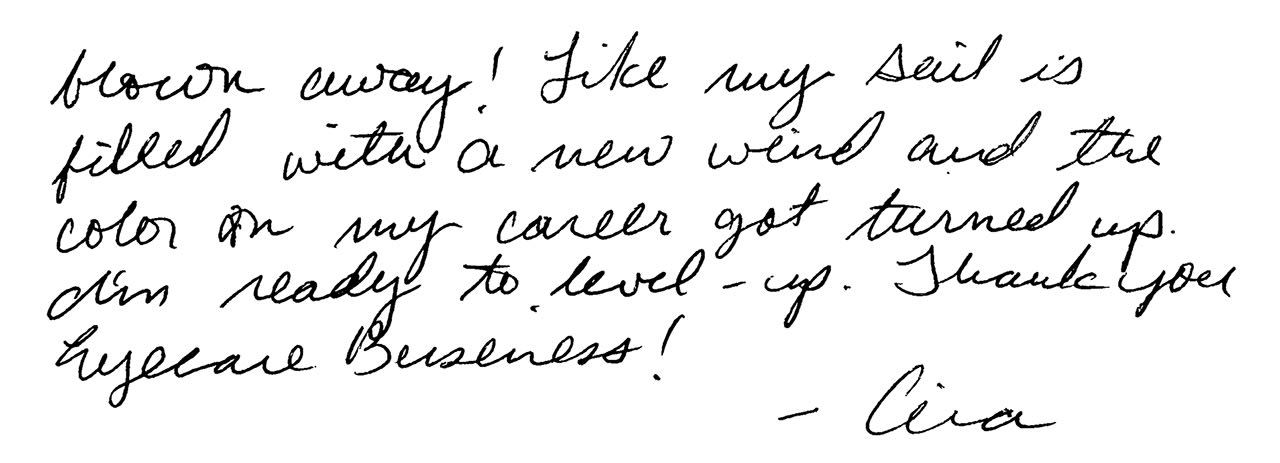 blown away! Like my sail is
filled with a new wind and the
color on my career got turned up.
I'm ready to level-up. Thank you
Eyecare Business!
- Cira